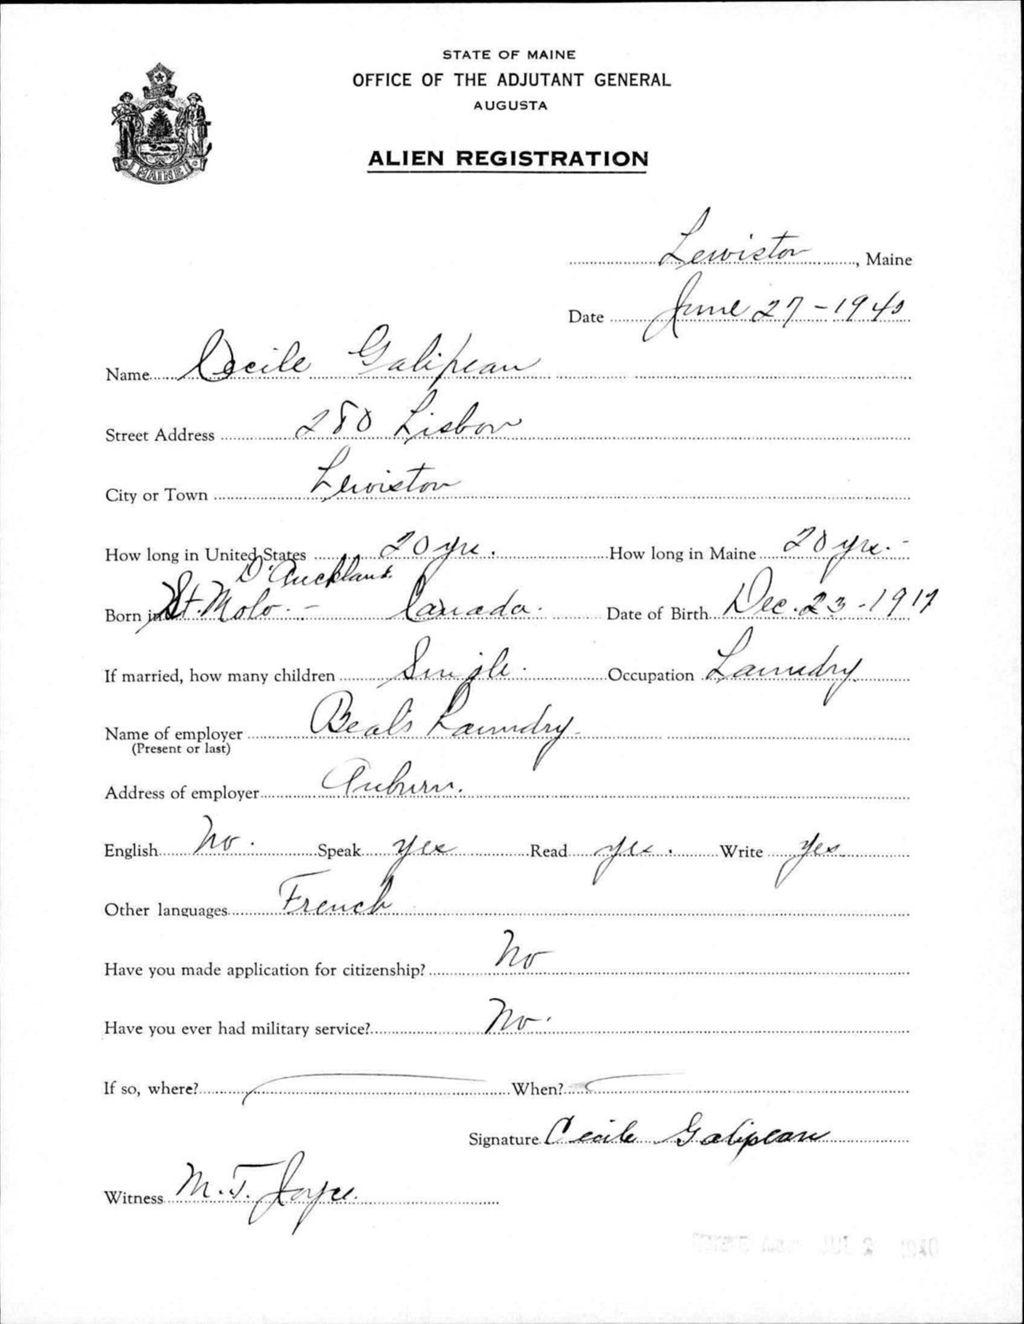 STATE OF MAINE
OFFICE OF THE ADJUTANT GENERAL
AUGUSTA
MAINE
ALIEN REGISTRATION
Lewiston, Maine
Date June 27-1940
Name Cecile Galipeau
Street Address 280 Lisbon
City or Town Lewiston
How long in United States 20 yrs. How long in Maine 20 yrs.-
D'Auckland.
Born in St. Malo - Canada. Date of Birth Dec. 23-1917
If married, how many children Single. Occupation Laundry.
Name of employer Beal's Laundry.
(Present or last)
Address of employer Auburn.
English No. Speak yes Read yes. Write yes
Other languages French
Have you made application for citizenship? No
Have you ever had military service? No.
If so, where? When?
Signature Cecile Galipeau
Witness M. T. Joyce.